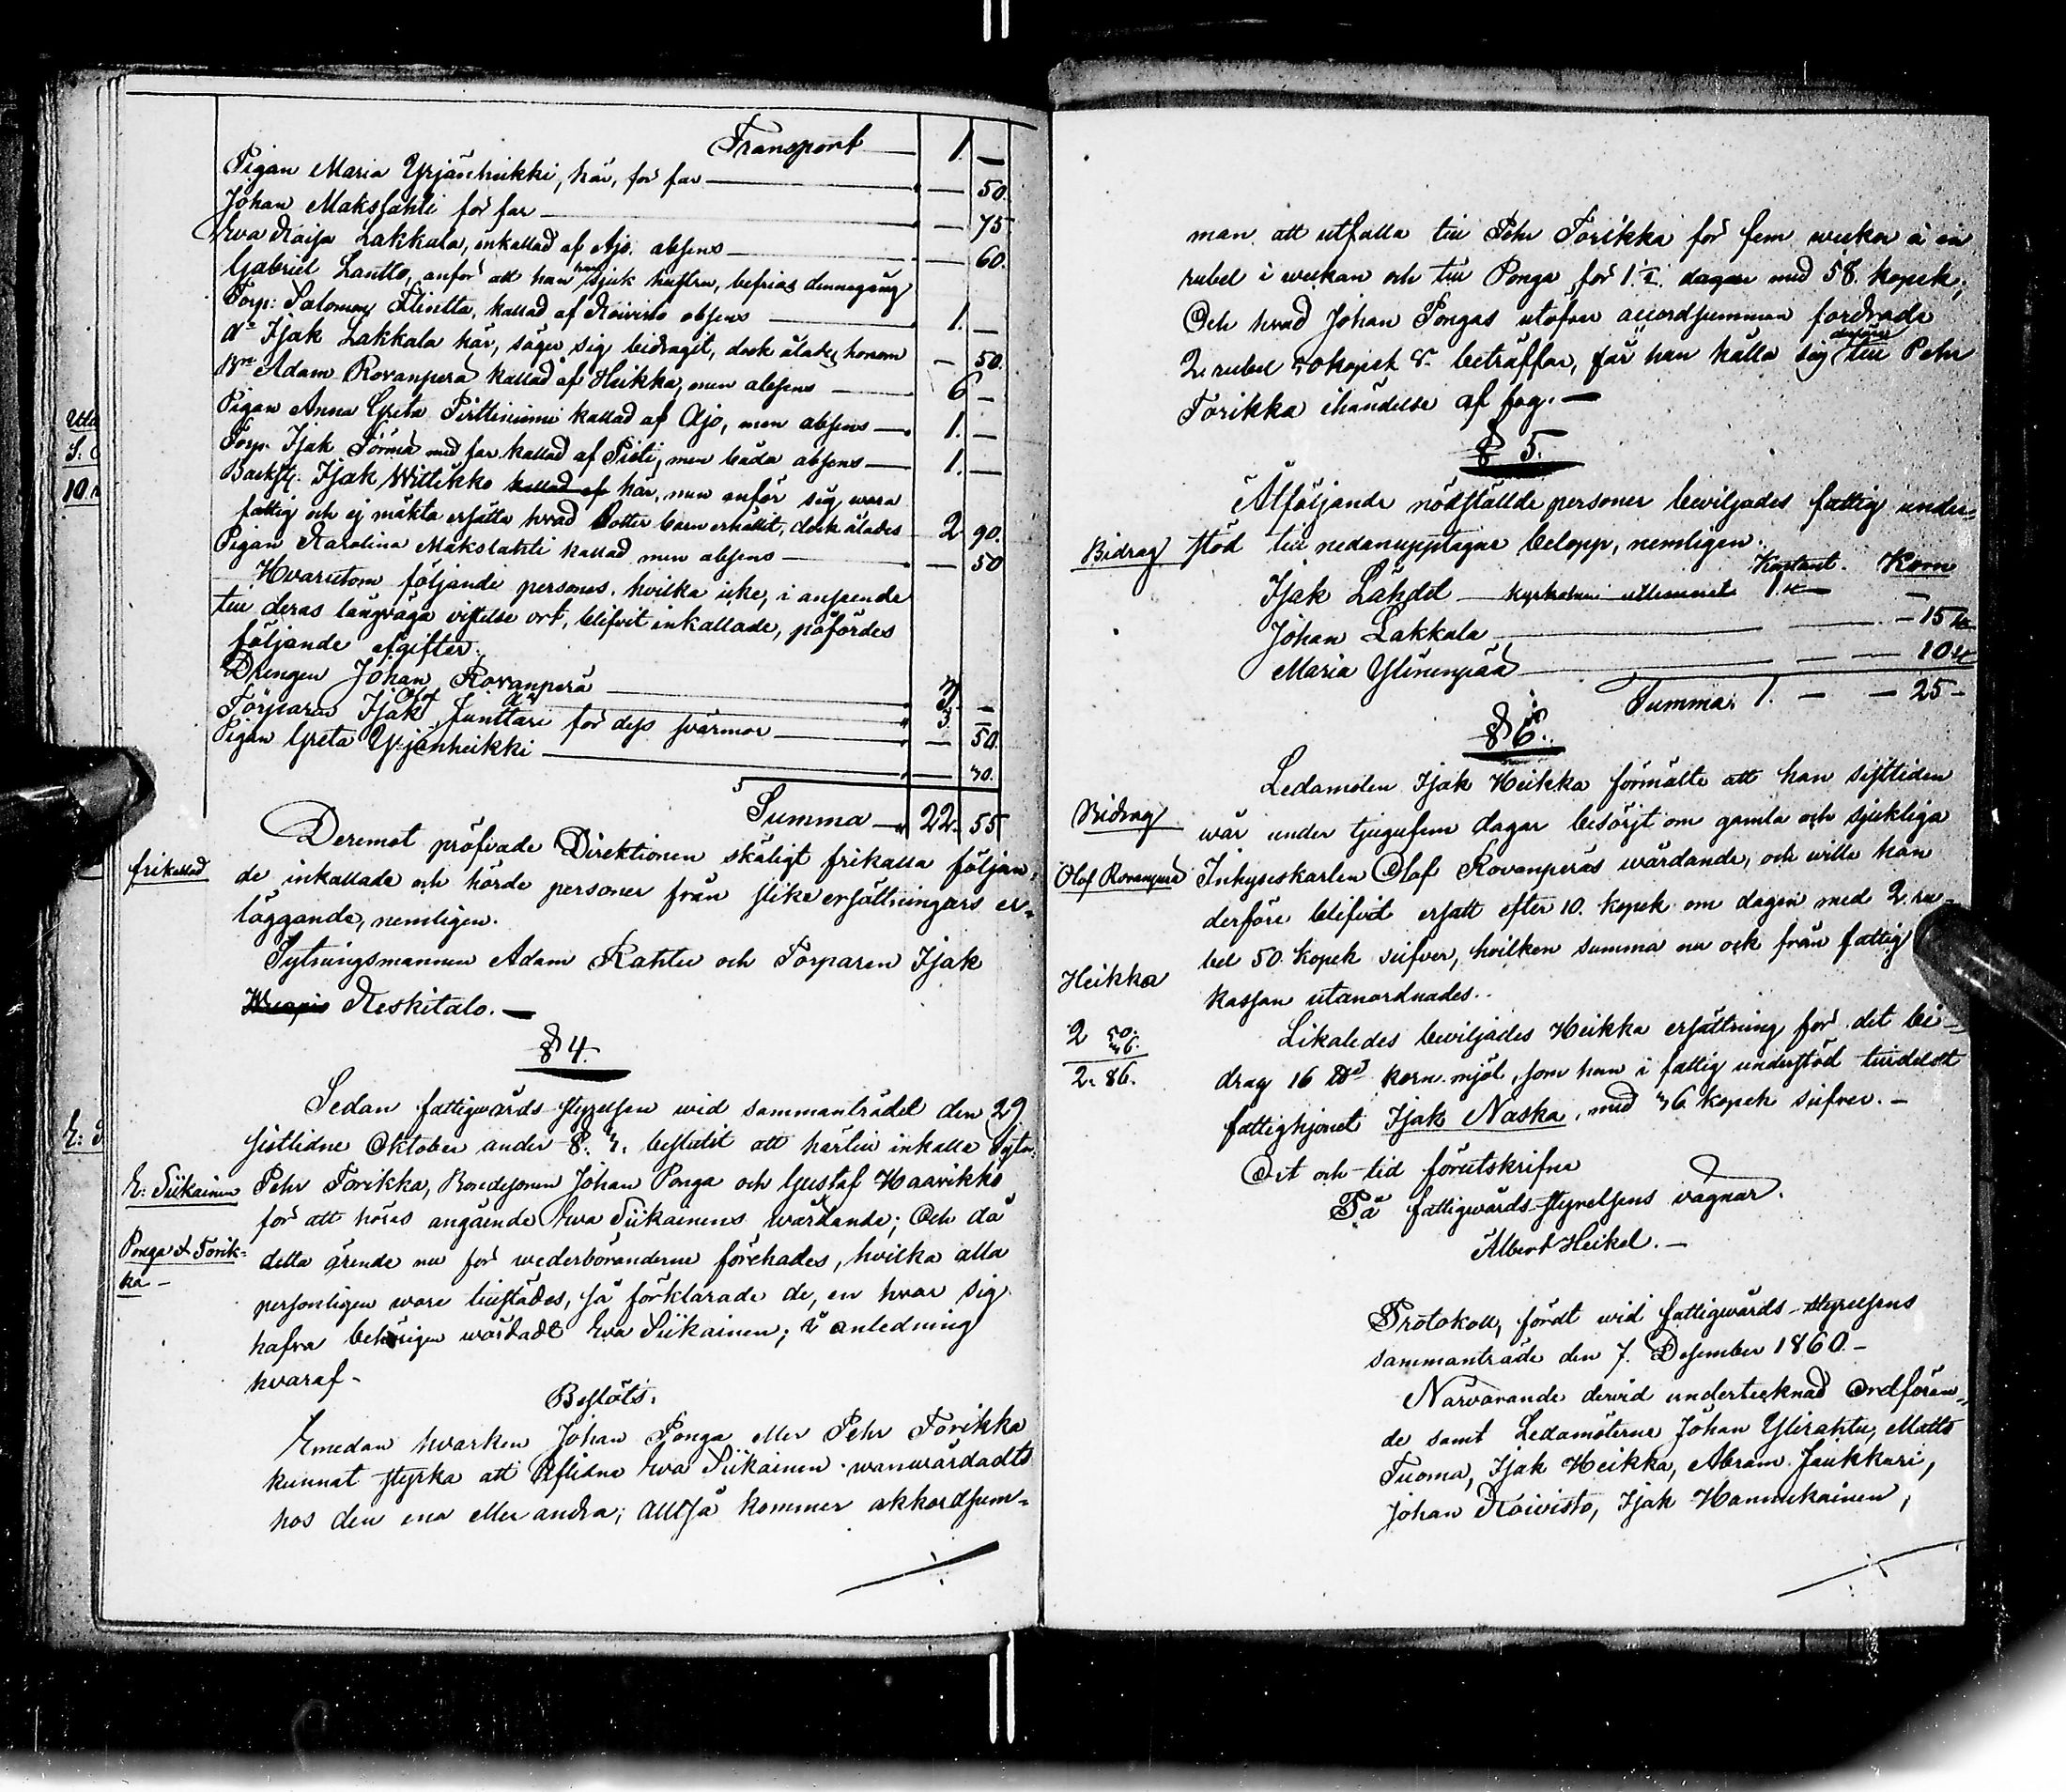 Transport — 1. —
Pigan Maria Yrjänheikki, här, för far — — 50.
Johan Makslahti för far — — 75
Eva Kaisa Lakkala, inkallad af Ajo. absens — — 60.
Gabriel Lantto, anför att han har sjuk hustru, befrias dennagång
Torp: Salomon Flintta, kallad af Koivisto absens — 1. —
do Isak Lakkala här, säger sig bidragit, dock ålades honom — 50.
Adam Rovanperä kallad af Heikka, men absens — 6 —
Pigan Anna Greta Pirttiniemi kallad af Ajo, men absens — 1. —
Torp. Isak Törmä med far kallad af Pisti, men båda absens — 1. —
Backst. Isak Wittikko kallad af här, men anför sig wara
fattig och ej mäkta ersätta hvad dotter barn erhållit, dock ålades 2 90.
Pigan Karolina Makslahti kallad men absens — — 50
Hvarutom följande persones, hvilka icke, i anseende
till deras långväga vistelse ort, blifvit inkallade, påfördes
följande afgifter:
Drengen Johan Rovanperä — 3. —
Torparen Isak Olof Junttari för dess svärmor — 3. 50.
Pigan Greta Yrjänheikki — — 30.
Summa — 22. 55
frikallad
Deremot pröfvade Direktionen skäligt frikalla följan-
de inkallade och hörde personer från slike ersättningars er-
läggande, nemligen.
Sytningsmannen Adam Rahtu och Torparen Isak
Keskitalo. —
§ 4.
Sedan fattigwårds styrelsen wid sammanträdet den 29
sistlidne Oktober under §. 3. beslutit att härtill inkalla Sytn:
E: Siikainen
Pehr Torikka, Bondesonen Johan Ponga och Gustaf Haarikko
för att höras angående Eva Siikainens wårdande; Och då
Ponga & Torik-
ka —
detta ärende nu för wederböranderne förehades, hvilka alla
personligen woro tillstädes, så förklarade de, en hvar sig
hafva behörigen wårdadt Eva Siikainen; i anledning
hvaraf —
Beslöts.
Emedan hvarken Johan Ponga eller Pehr Torikka
kunnat styrka att Aflidne Eva Siikainen wanwårdadts
hos den ena eller andra; Alltså kommer akkordsum-
man att utfalla till Pehr Torikka för fem weckor à en
rubel i weckan och till Ponga för 1. dagar med 58. kopek;
Och hvad Johan Pongas utöfver accordsumman fordrade
2. rubel 50 kopek Sr beträffar, får han hålla sig derföre till Pehr
Torikka ihändelse af fog. —
§ 5.
Åtföljande nödställde personer beviljades fattig under-
Bidrag
stöd till nedanupptagne belopp, nemligen.
Kontant. Korn
Isak Lahdet — 1 — —
Johan Lakkala — — 15
Maria Ylinenpää — — 10
Summa: 1. — — 25 —
§ 6.
Ledamoten Isak Heikka förmälte att han sisttiden
Bidrag
wår under tjugufem dagar besörjt om gamla och sjukliga
Olof Rovanperä
Inhyseskarlen Olof Rovanperäs wårdande, och wille han
derföre blifvit ersatt efter 10. kopek om dagen med 2. ru-
bel 50. kopek silfver, hvilken summa nu ock från fattig
Heikka
kassan utanordnades.
2 50.
36.
2. 86.
Likaledes beviljades Heikka ersättning för det bi-
drag 16 korn mjöl, som han i fattig understöd tilldeldt
fattighjonet Isak Naska, med 36 kopek silfver. —
Ort och tid förutskrifne
På fattigwårds styrelsens vägnar.
Albert Heikel. —
Protokoll, fördt wid fattigwårds styrelsens
sammanträde den 7. Desember 1860. —
Närvarande dervid undertecknad Ordföran-
de samt Ledamöterne Johan Ylirahtu, Matts
Tuoma, Isak Heikka, Abram Jaukkuri,
Johan Koivisto, Isak Hannukainen,